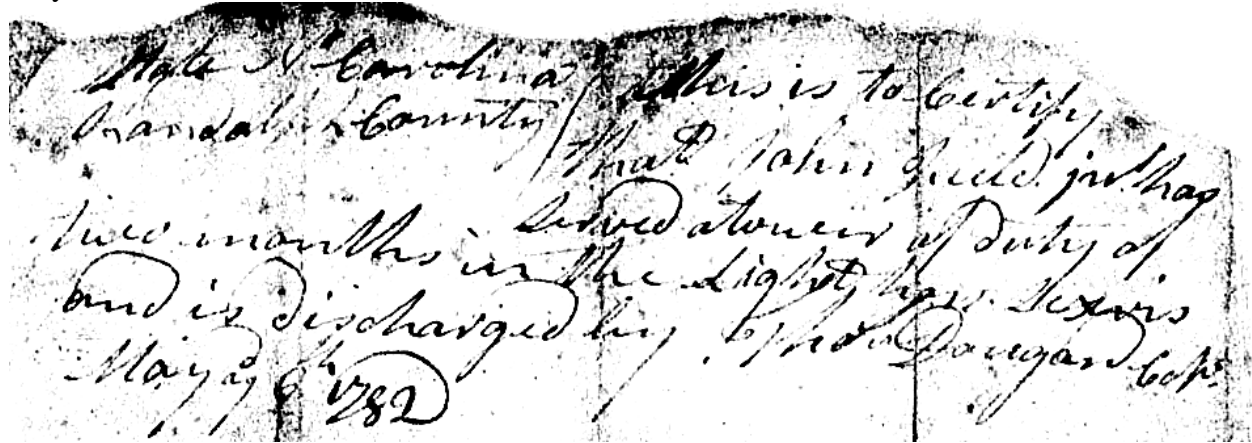 State N Carolina
Randolph County
This is to Certify
that John jnr. has
Served a of duty of
two months in the Light hors
and is discharged by Dougan Cols.
May ye 6th 1782